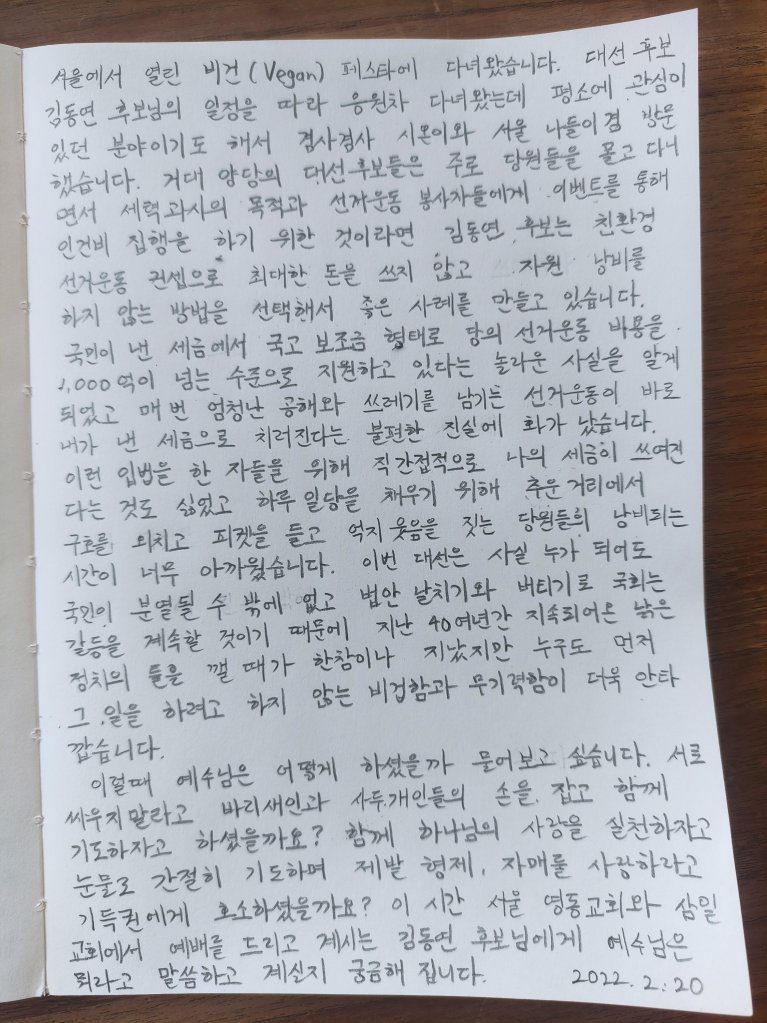 서울에서 열린 비건(Vegan) 페스타에 다녀왔습니다. 대선 후보
김동연 후보님의 일정을 따라 응원차 다녀왔는데 평소에 관심이
있던 분야이기도 해서 겸사겸사 시몬이와 서울 나들이겸 방문
했습니다. 거대 양당의 대선후보들은 주로 당원들을 몰고 다니
면서 세력과시의 목적과 선거운동 봉사자들에게 이벤트를 통해
인건비 집행을 하기 위한 것이라면 김동연 후보는 친환경
선거운동 컨셉으로 최대한 돈을 쓰지 않고 자원 낭비를
하지 않는 방법을 선택해서 좋은 사례를 만들고 있습니다.
국민이 낸 세금에서 국고 보조금 형태로 당의 선거운동 비용을
1,000억이 넘는 수준으로 지원하고 있다는 놀라운 사실을 알게
되었고 매번 엄청난 공해와 쓰레기를 남기는 선거운동이 바로
내가 낸 세금으로 치러진다는 불편한 진실에 화가 났습니다.
이런 입법을 한 자들을 위해 직간접적으로 나의 세금이 쓰여진
다는 것도 싫었고 하루 일당을 채우기 위해 추운 거리에서
구호를 외치고 피켓을 들고 억지 웃음을 짓는 당원들의 낭비되는
시간이 너무 아까웠습니다. 이번 대선은 사실 누가 되어도
국민이 분열될 수 밖에 없고 법안 날치기와 버티기로 국회는
갈등을 계속할 것이기 때문에 지난 40여년간 지속되어온 낡은
정치의 틀을 깰 때가 한참이나 지났지만 누구도 먼저
그 일을 하려고 하지 않는 비겁함과 무기력함이 더욱 안타
깝습니다.
이럴때 예수님은 어떻게 하셨을까 물어보고 싶습니다. 서로
싸우지말라고 바리새인과 사두개인들의 손을 잡고 함께
기도하자고 하셨을까요? 함께 하나님의 사랑을 실천하자고
눈물로 간절히 기도하며 제발 형제, 자매를 사랑하라고
기득권에게 호소하셨을까요? 이 시간 서울 영동교회와 삼일
교회에서 예배를 드리고 계시는 김동연 후보님에게 예수님은
뭐라고 말씀하고 계실지 궁금해 집니다. 2022. 2. 20